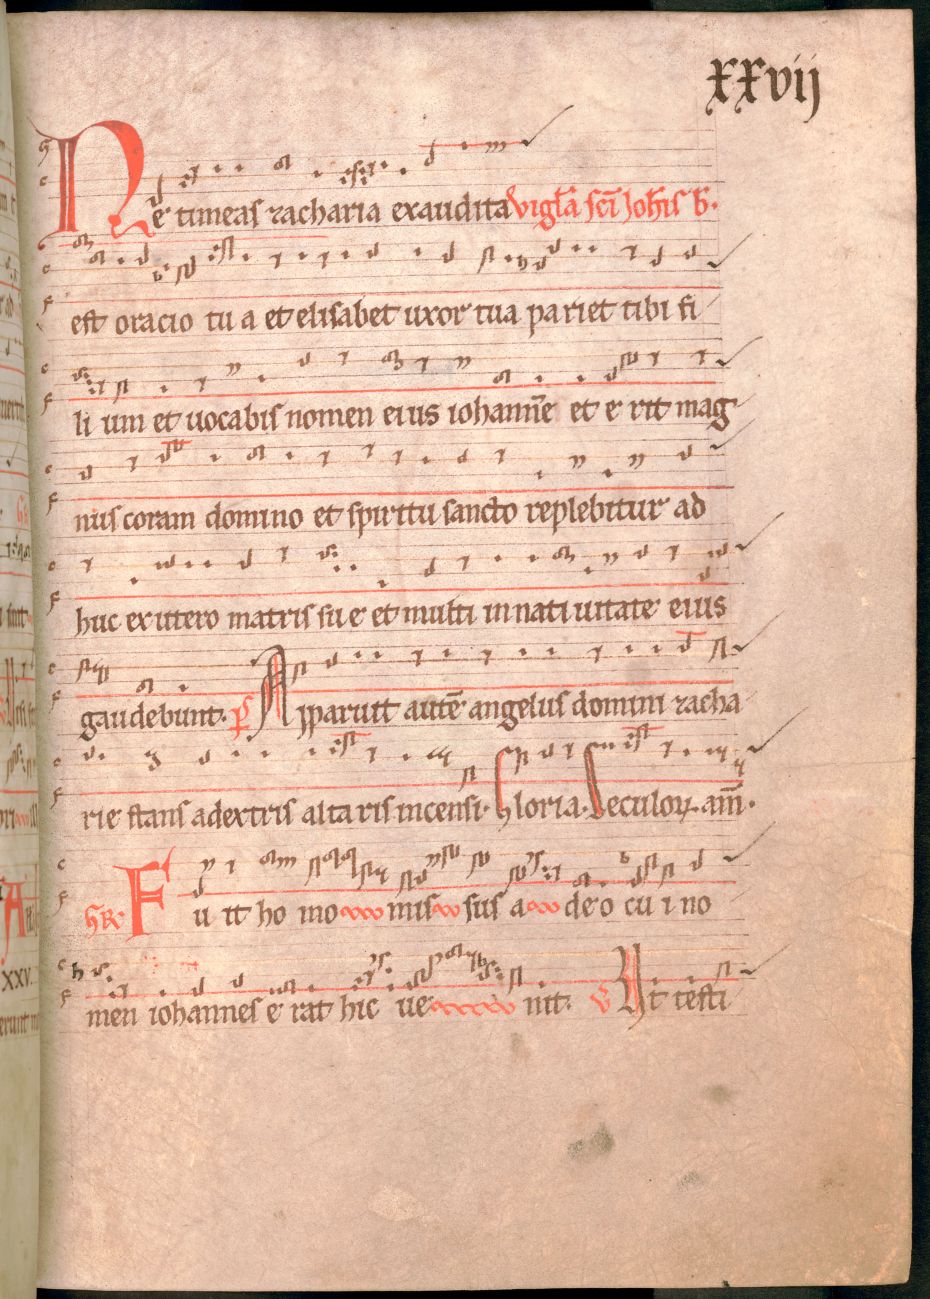 xxvij
Ne timeas zacharia exaudita vigl̄a sc̄i joh̄is b.
est oracio tu a et elisabet uxor tua pariet tibi fi
li um et uocabis nomen eius iohann̄e et e rit mag
nus coram domino et spiritu sancto replebitur ad
huc ex utero matris su e et multi in nati uitate eius
gaudebunt. p̄s Apparuit autē angelus domini zacha
rie stans adextris alta ris incensi. Gloria. Seculoꝝ. am̄.
Gr̄. Fu it ho mo mis sus a de o cu i no
men iohannes e rat hic ue nit. v̄ Ut testi
xxv.